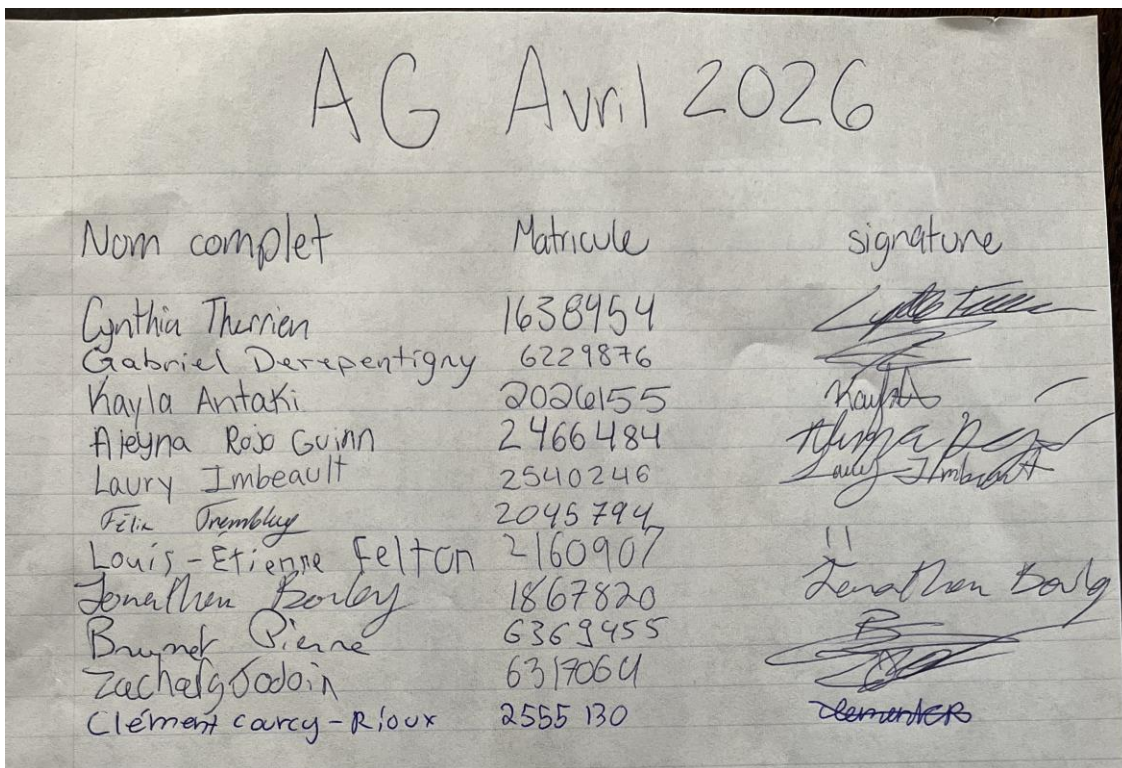 AG Avril 2026
Nom complet Matricule signature
Cynthia Therrien 1638954
Gabriel Derepentigny 6229876
Kayla Antaki 2026155 KaylaA
Aleyna Rojo Guinn 2466484
Laury Imbeault 2540246 Laury Imbeault
Félix Tremblay 2045794
Louis-Étienne Felton 2160907 11
Jonathan Borley 1867820 Jonathan
Brunet Pierre 6369455 B
Zachary Godoin 6317064
Clément carcy-Rioux 2555 130